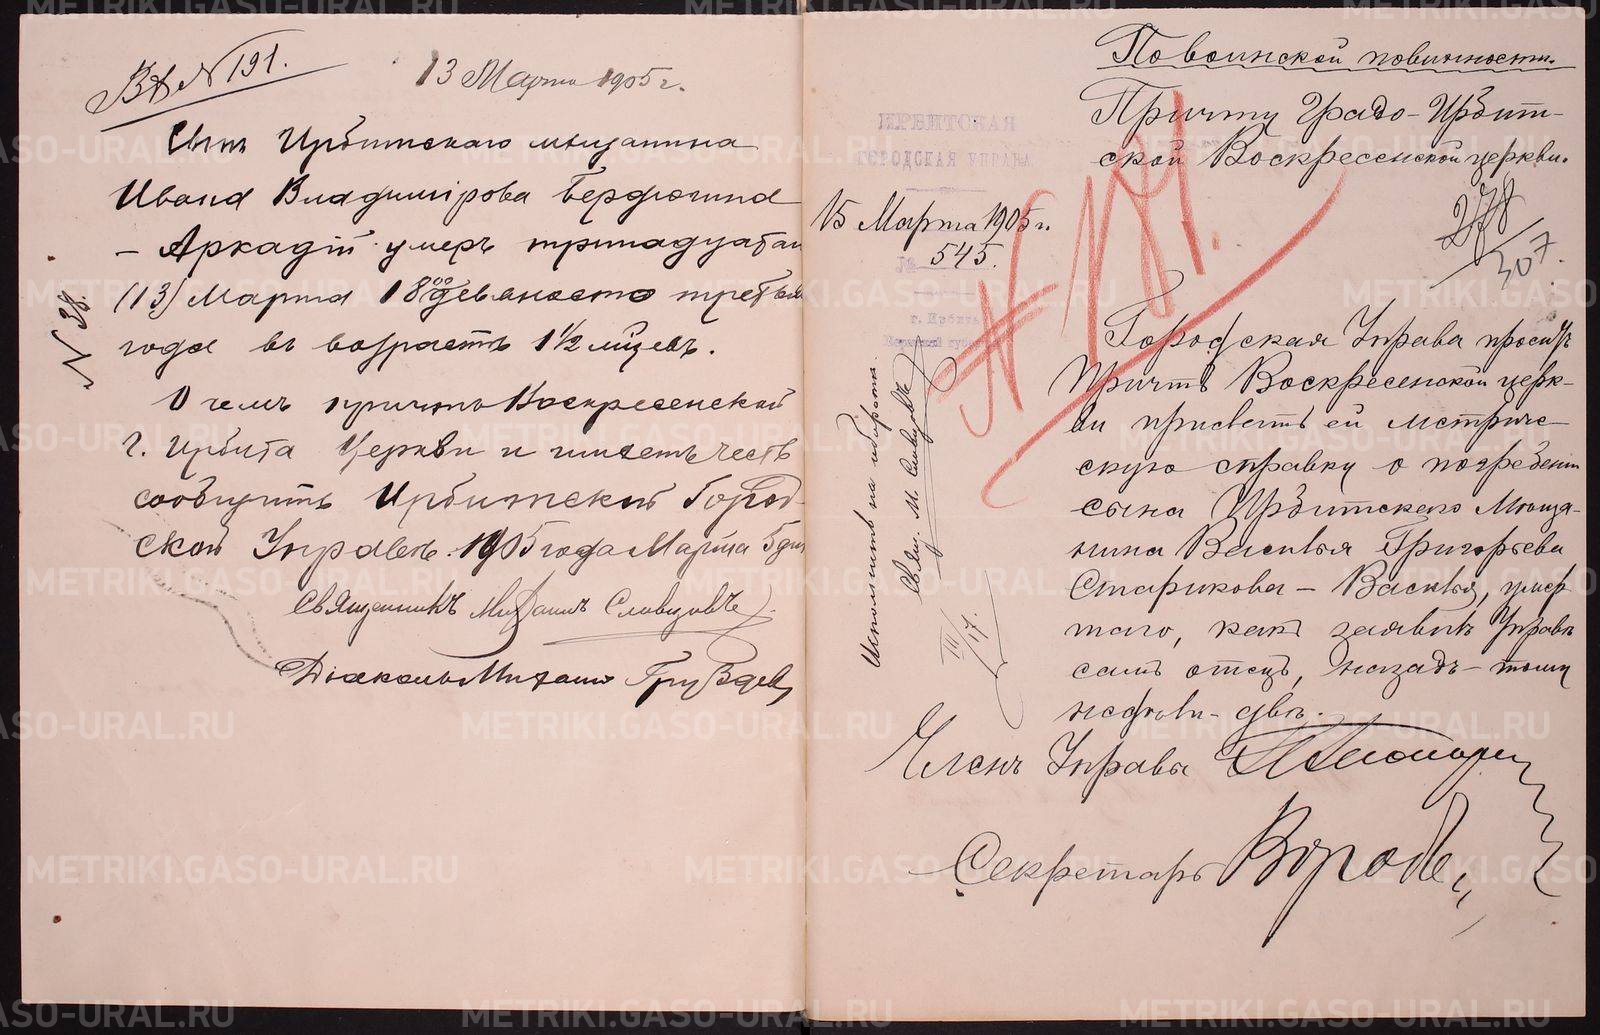 Вх № 191.
13 Марта 1905 г.
Сынъ Ирбитскаго мѣщанина
Ивана Владимірова Бердюгина
– Аркадій умеръ тринадцатаго
(13) Марта 18 девяносто третьяго
года въ возрастѣ 1½ мѣсяцевъ.
О чемъ причтъ Воскресенской
г. Ирбита Церкви и имѣетъ честь
сообщить Ирбитской Город-
ской Управѣ. 1905 года Марта 5 дня
Священникъ Михаилъ Словцовъ
Діаконъ Михаилъ Груздевъ
№ 38.
По воинской повинности.
Причту Градо-Ирбит-
ской Воскресенской церкви.
ИРБИТСКАЯ
ГОРОДСКАЯ УПРАВА
15 Марта 1905 г.
№ 545.
г. Ирбитъ
№ 191.
278
307.
Городская Управа проситъ
Причтъ Воскресенской церк-
ви прислать ей метриче-
скую справку о погребеніи
сына Ирбитскаго Мѣща-
нина Василья Григорьева
Старикова – Василья, умер
шаго, какъ заявилъ Управѣ
самъ отецъ, назадъ тому
года два.
Исполнить на оборотѣ.
Свящ. М. Словцовъ
III/17.
Членъ Управы
Секретарь